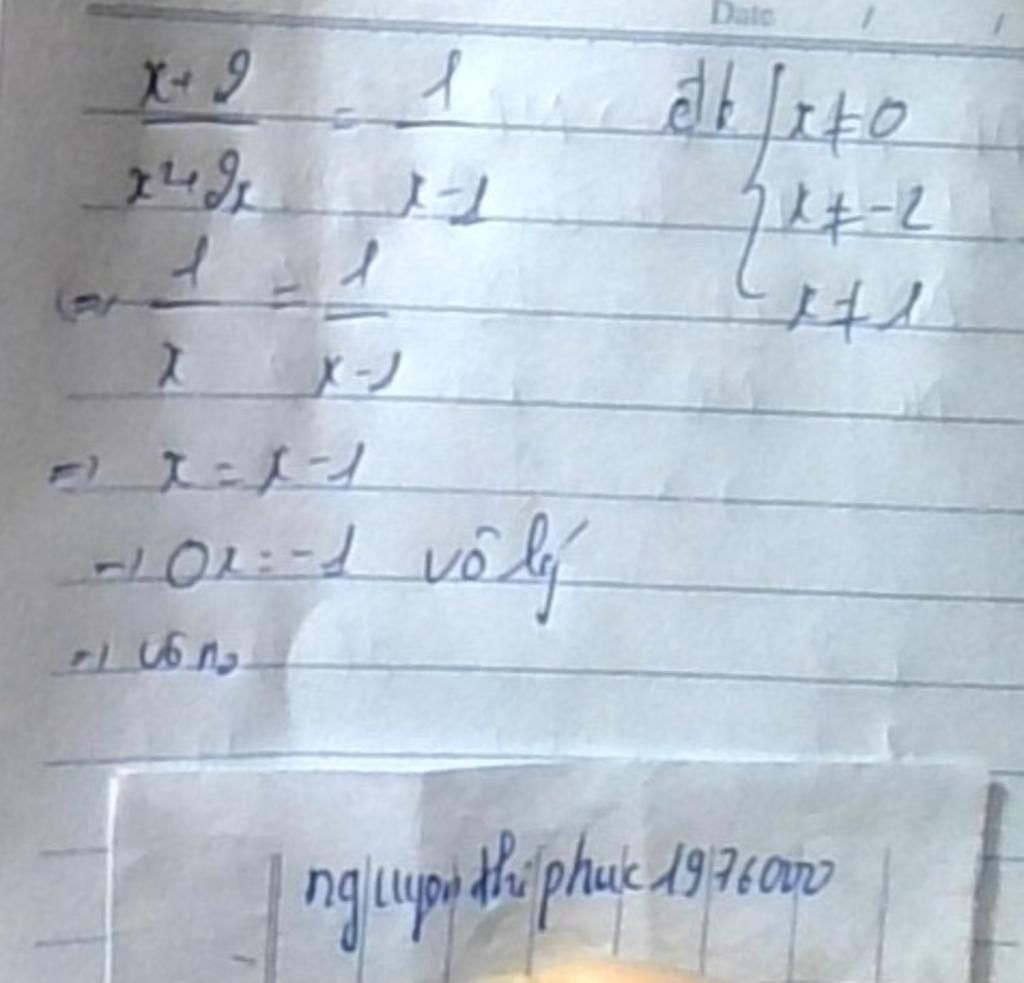 Date / /
x+2/x²+2x = 1/x-1 đk { x≠0
x≠-2
x≠1
<=> 1/x = 1/x-1
=> x = x-1
=> 0x = -1 vô lý
=> vô n₀
nguyen thi phuc 1976000